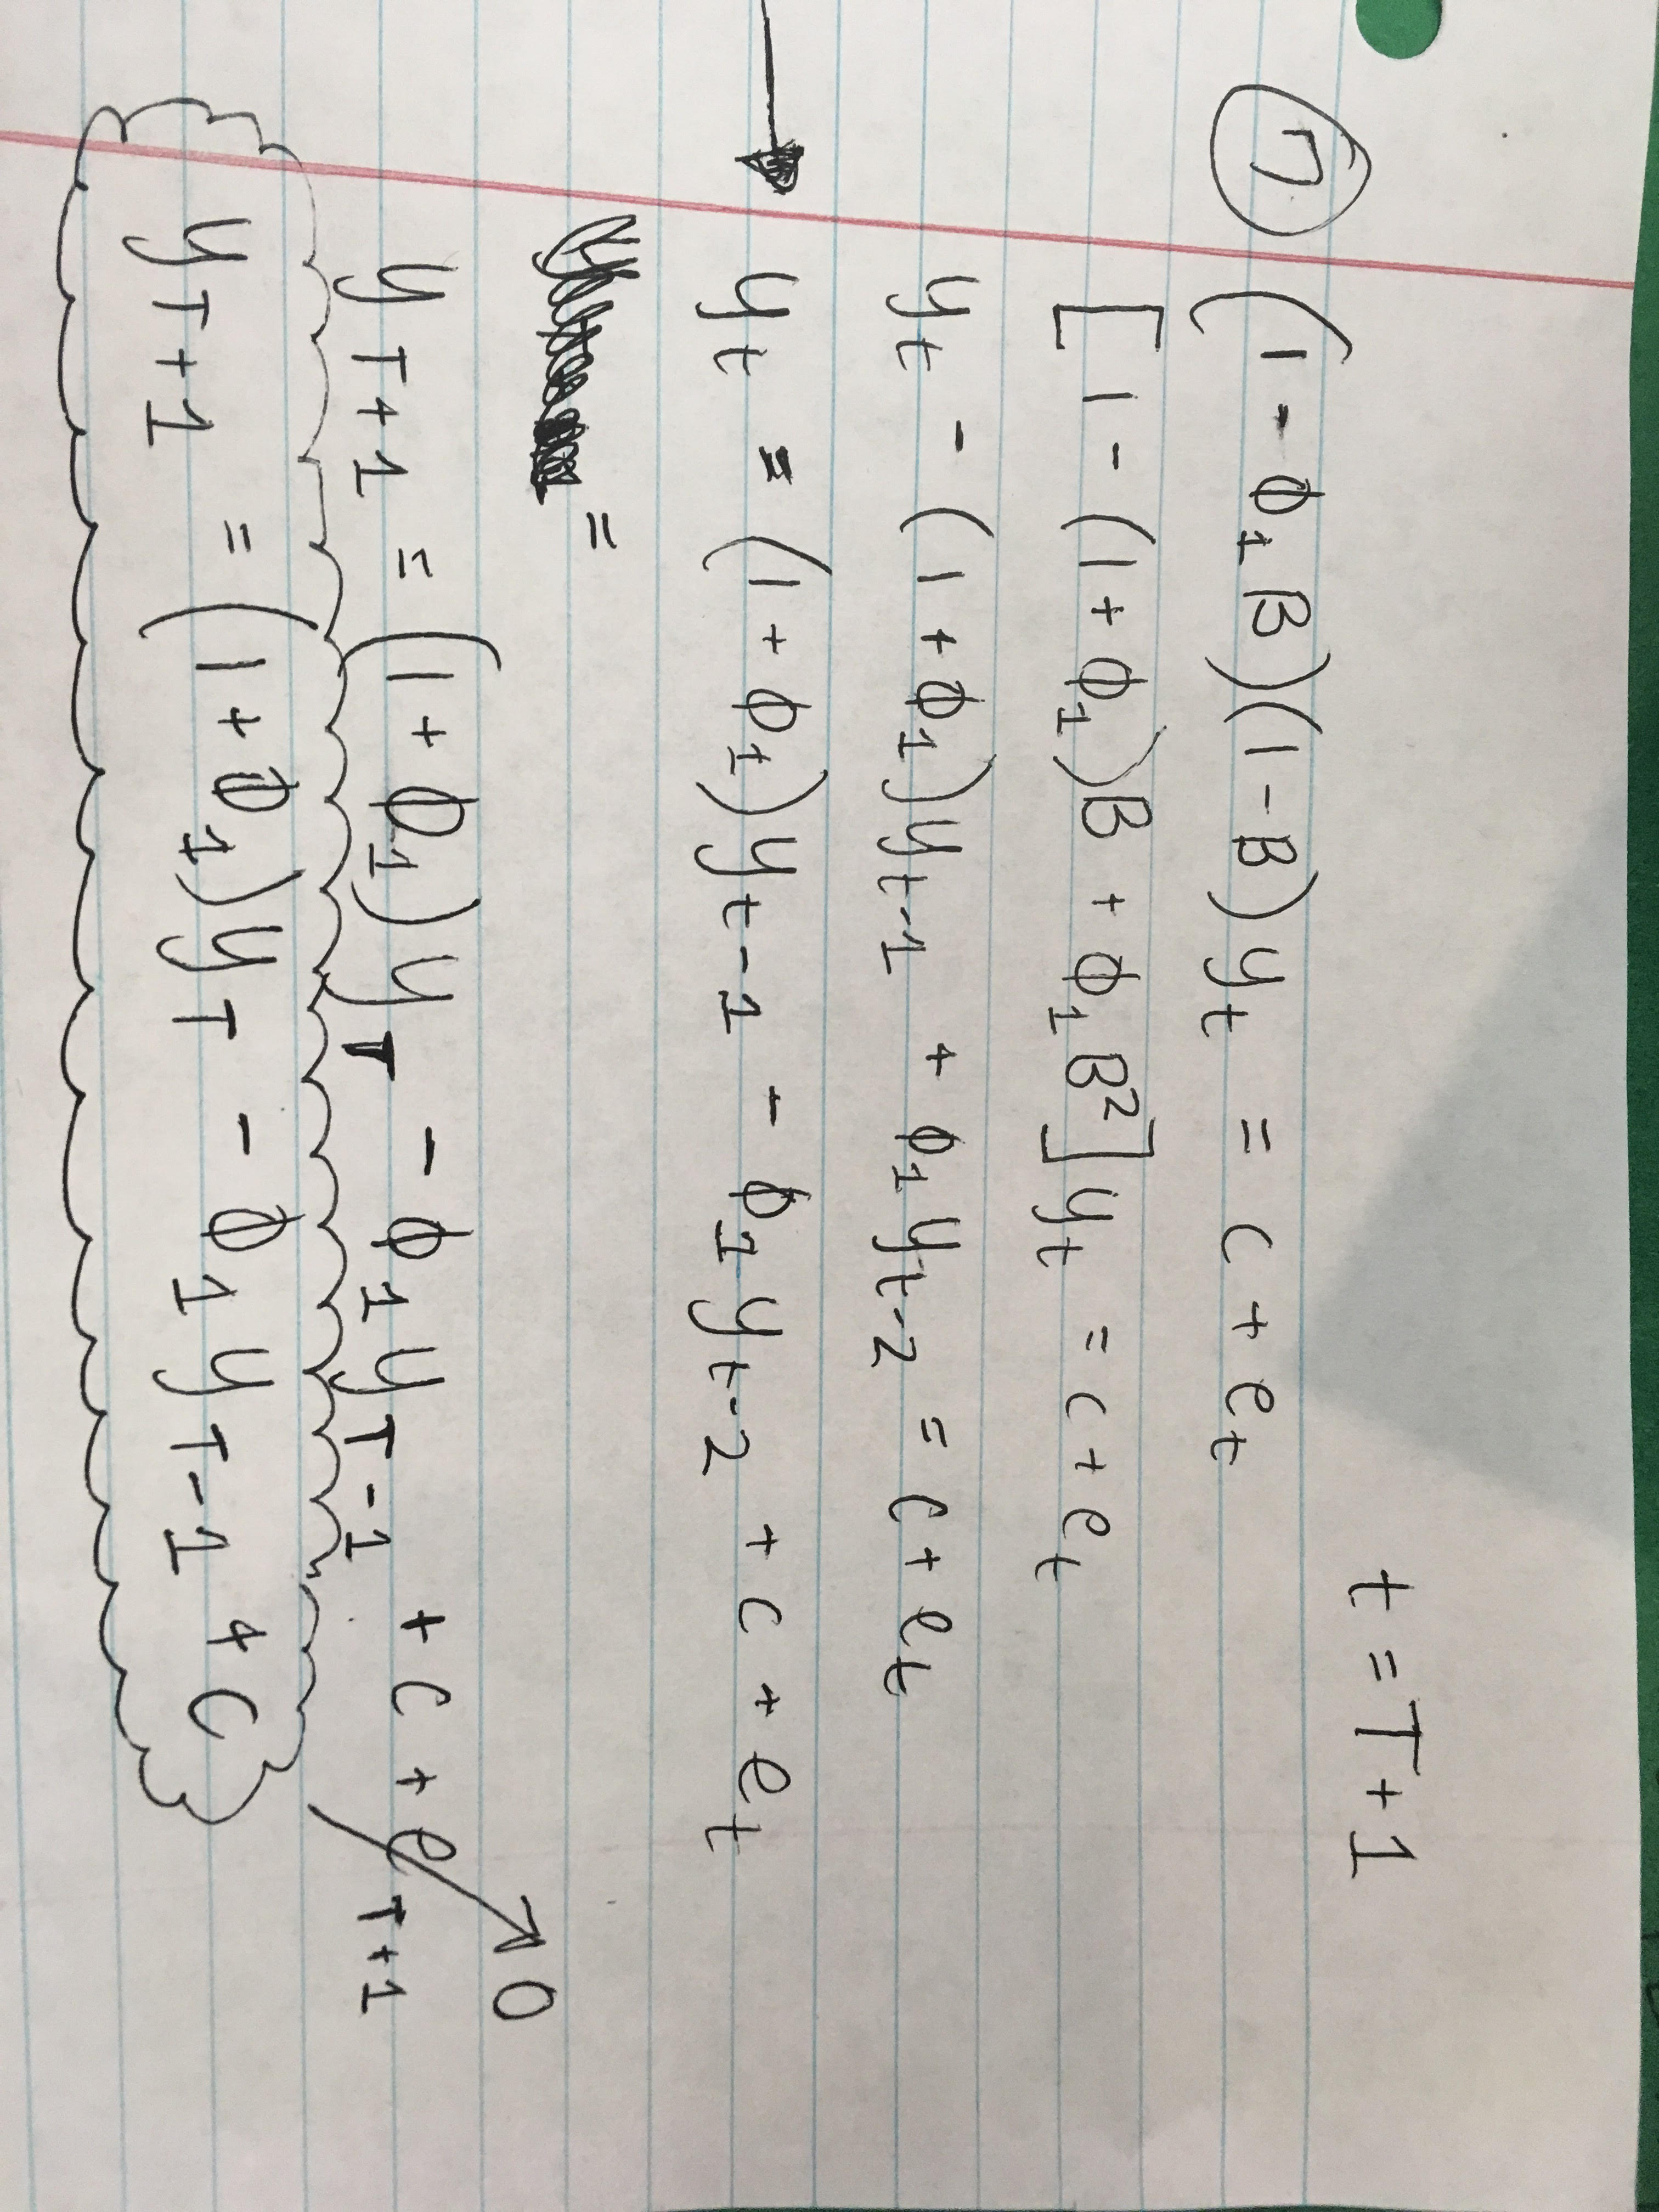 t = T + 1
⑦ (1 - ϕ₁B)(1 - B)yₜ = c + eₜ
[1 - (1 + ϕ₁)B + ϕ₁B²]yₜ = c + eₜ
yₜ - (1 + ϕ₁)yₜ₋₁ + ϕ₁yₜ₋₂ = c + eₜ
→ yₜ = (1 + ϕ₁)yₜ₋₁ - ϕ₁yₜ₋₂ + c + eₜ
=
y_T+1 = (1 + ϕ₁)y_T - ϕ₁y_T-1 + c + e_T+1 → 0
y_T+1 = (1 + ϕ₁)y_T - ϕ₁y_T-1 + c